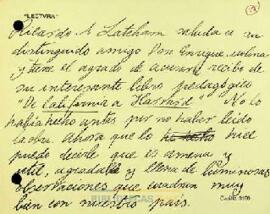 "LECTURA"
Ricardo A. Latcham saluda a su
distinguido amigo Don Enrique Molina
y tiene el agrado de acusar recibo de
su interesante libro pedagógico
"De California a Harvard". No lo
había hecho antes por no haber leído
la obra. Ahora que lo he hecho
puedo decirle que es amena y
útil, agradable y llena de luminosas
observaciones que cuadran muy
bien con nuestro país.